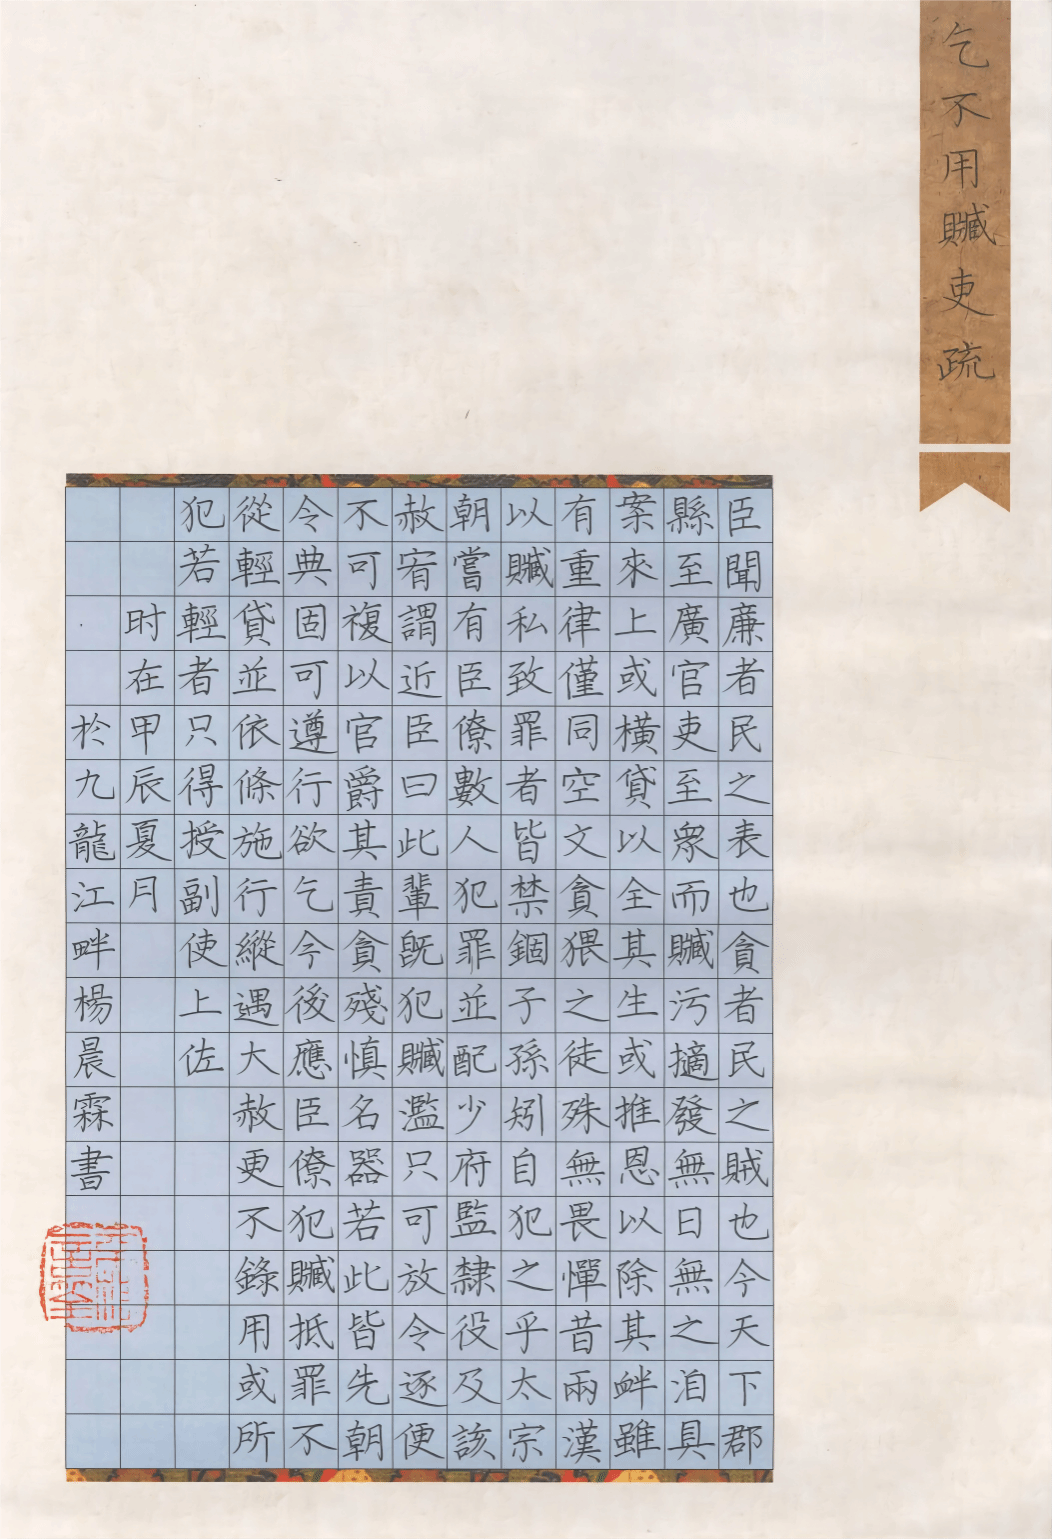 乞不用贓吏疏
臣聞廉者民之表也貪者民之賊也今天下郡
縣至廣官吏至衆而贓污擿發無日無之洎具
案來上或橫貸以全其生或推恩以除其衅雖
有重律僅同空文貪猥之徒殊無畏憚昔兩漢
以贓私致罪者皆禁錮子孫矧自犯之乎太宗
朝嘗有臣僚數人犯罪並配少府監隸役及該
赦宥謂近臣曰此輩既犯贓濫只可放令逐便
不可複以官爵其責貪殘慎名器若此皆先朝
令典固可遵行欲乞今後應臣僚犯贓抵罪不
從輕貸並依條施行縱遇大赦更不錄用或所
犯若輕者只得授副使上佐
时在甲辰夏月
於九龍江畔楊晨霖書